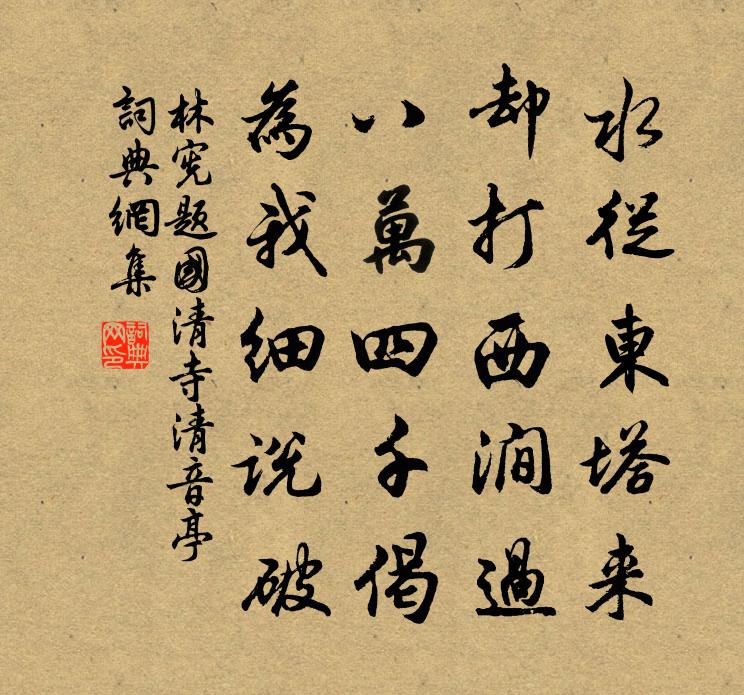 水從東塔来
却打西澗過
八萬四千偈
為我细説破
林憲题國清寺清音亭
詞典網集
詞典网印